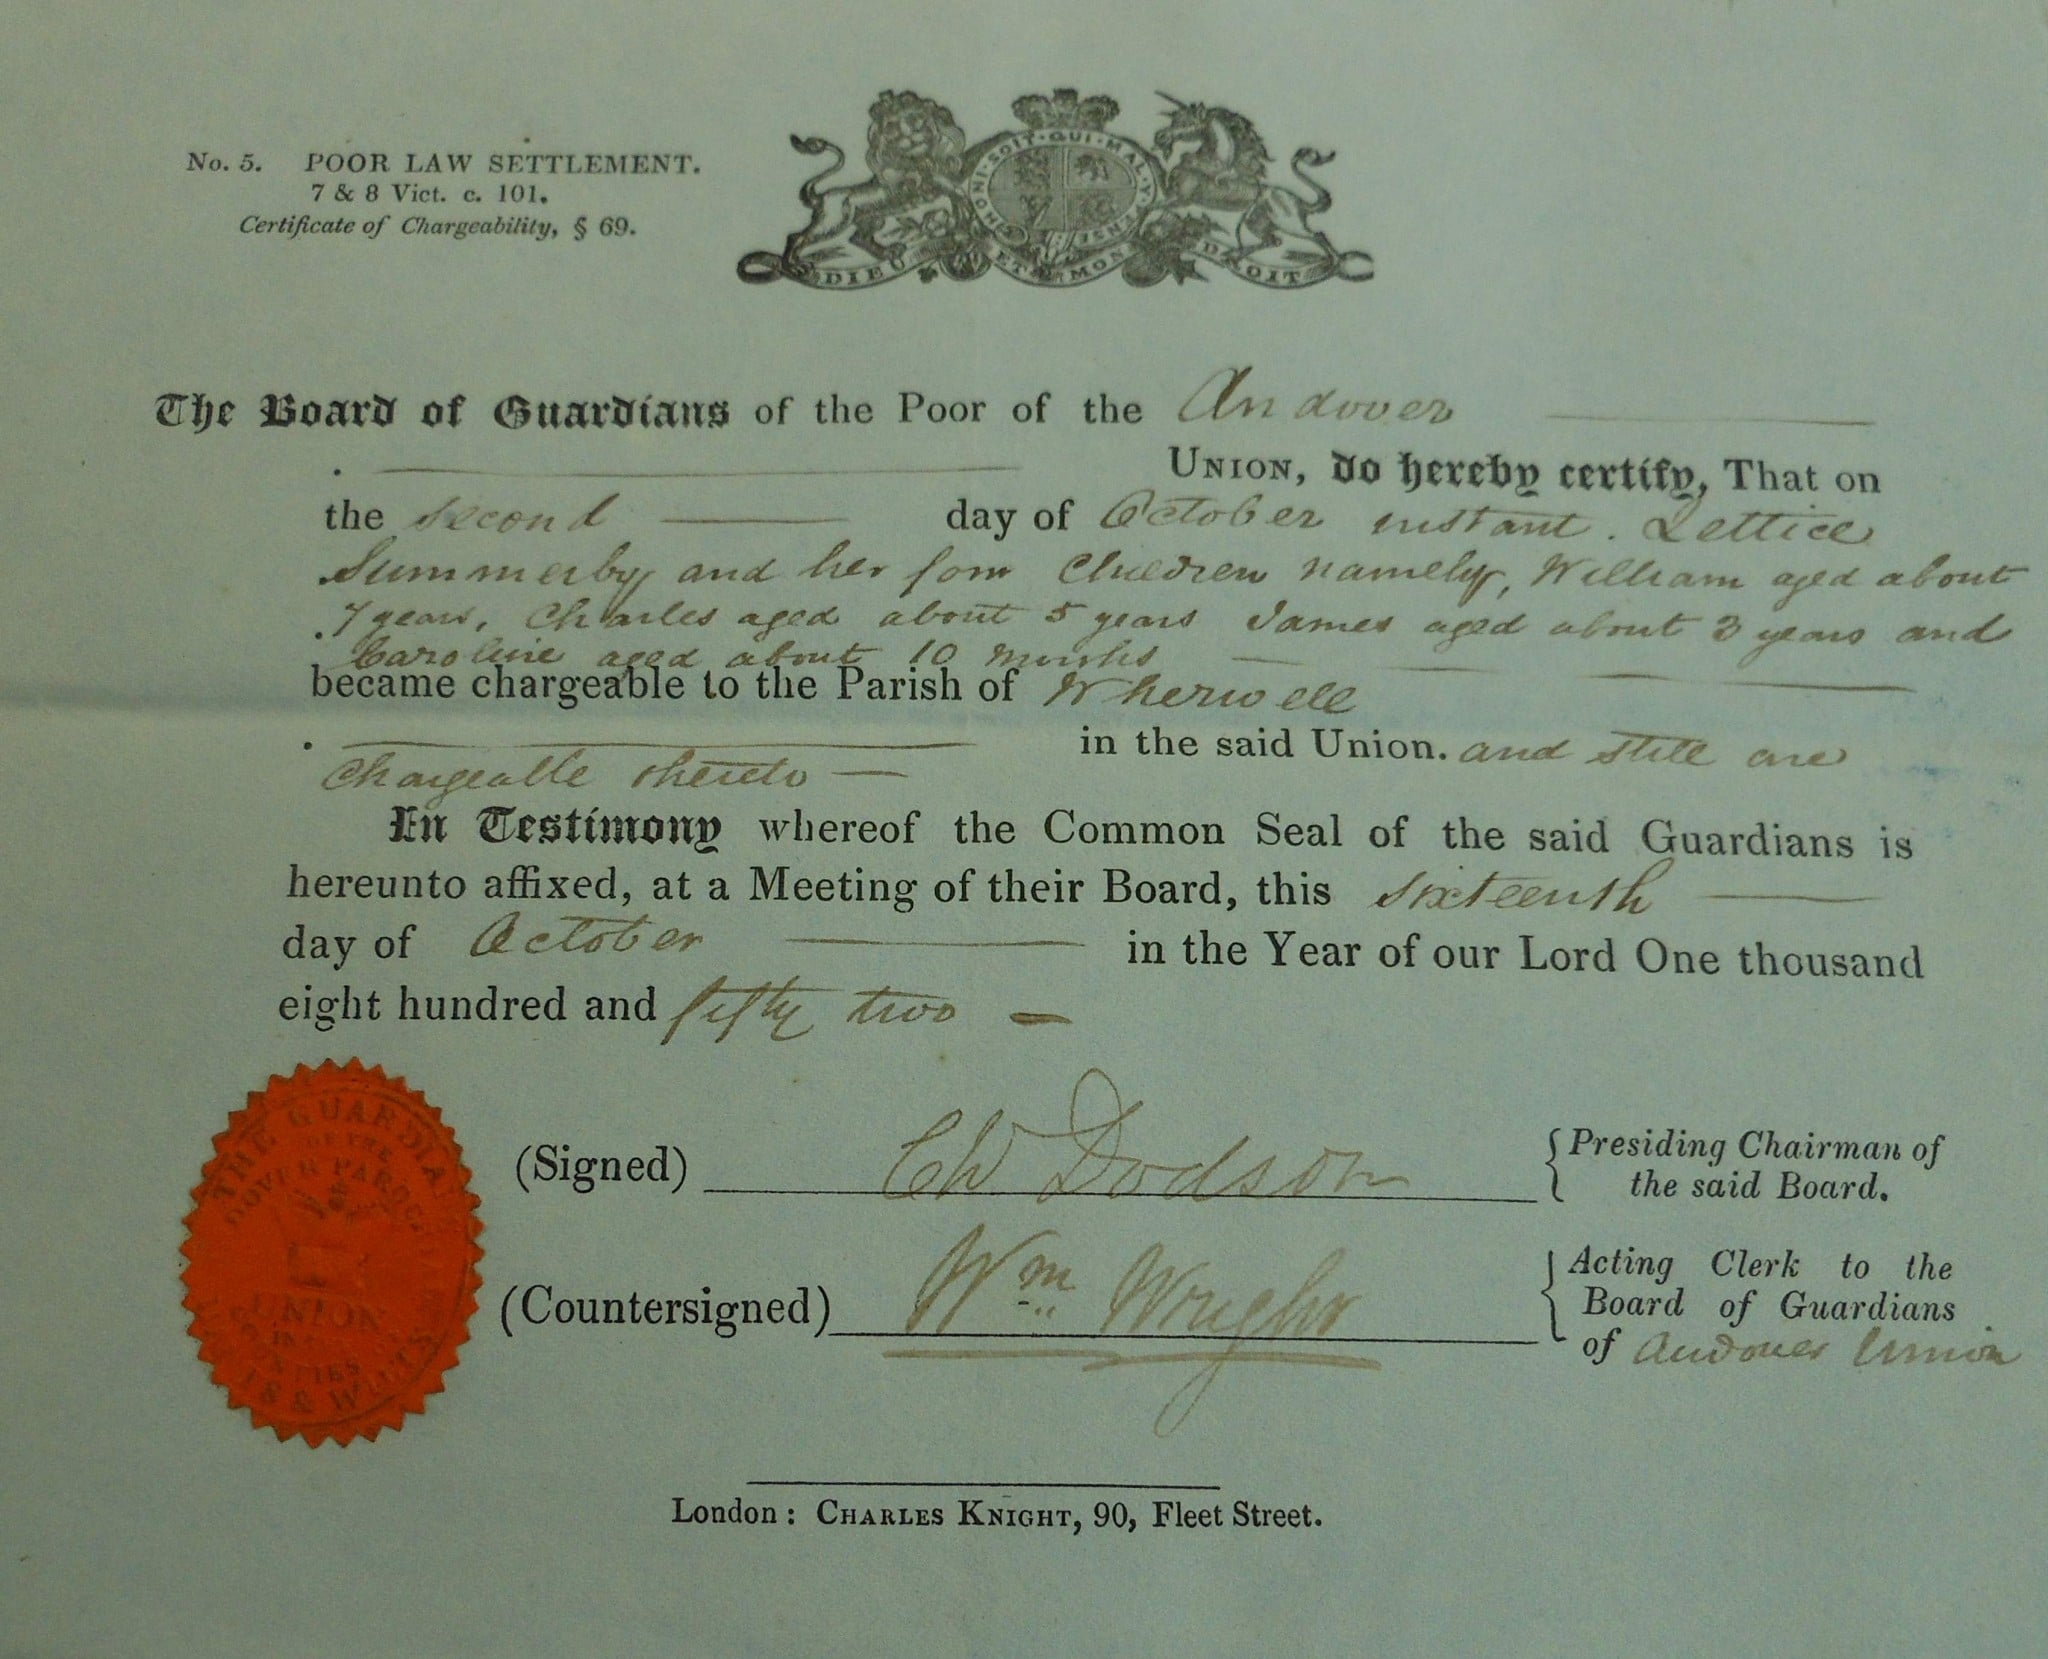 No. 5. POOR LAW SETTLEMENT.
7 & 8 Vict. c. 101.
Certificate of Chargeability, § 69.
HONI · SOIT · QUI · MAL · Y · PENSE
DIEU ET MON DROIT
The Board of Guardians of the Poor of the Andover
UNION, do hereby certify, That on
the second day of October instant. Lettice
Summerby and her four Children namely, William aged about
7 years, Charles aged about 5 years James aged about 3 years and
Caroline aged about 10 Months
became chargeable to the Parish of Wherwell
in the said Union. and still are
chargeable thereto
In Testimony whereof the Common Seal of the said Guardians is
hereunto affixed, at a Meeting of their Board, this sixteenth
day of October in the Year of our Lord One thousand
eight hundred and fifty two
(Signed) CH Dodson
Presiding Chairman of
the said Board.
(Countersigned) Wm Wright
Acting Clerk to the
Board of Guardians
of Andover Union
THE GUARDIA
OF THE
DOVER PAROC
UNION
& WILTS
London: CHARLES KNIGHT, 90, Fleet Street.